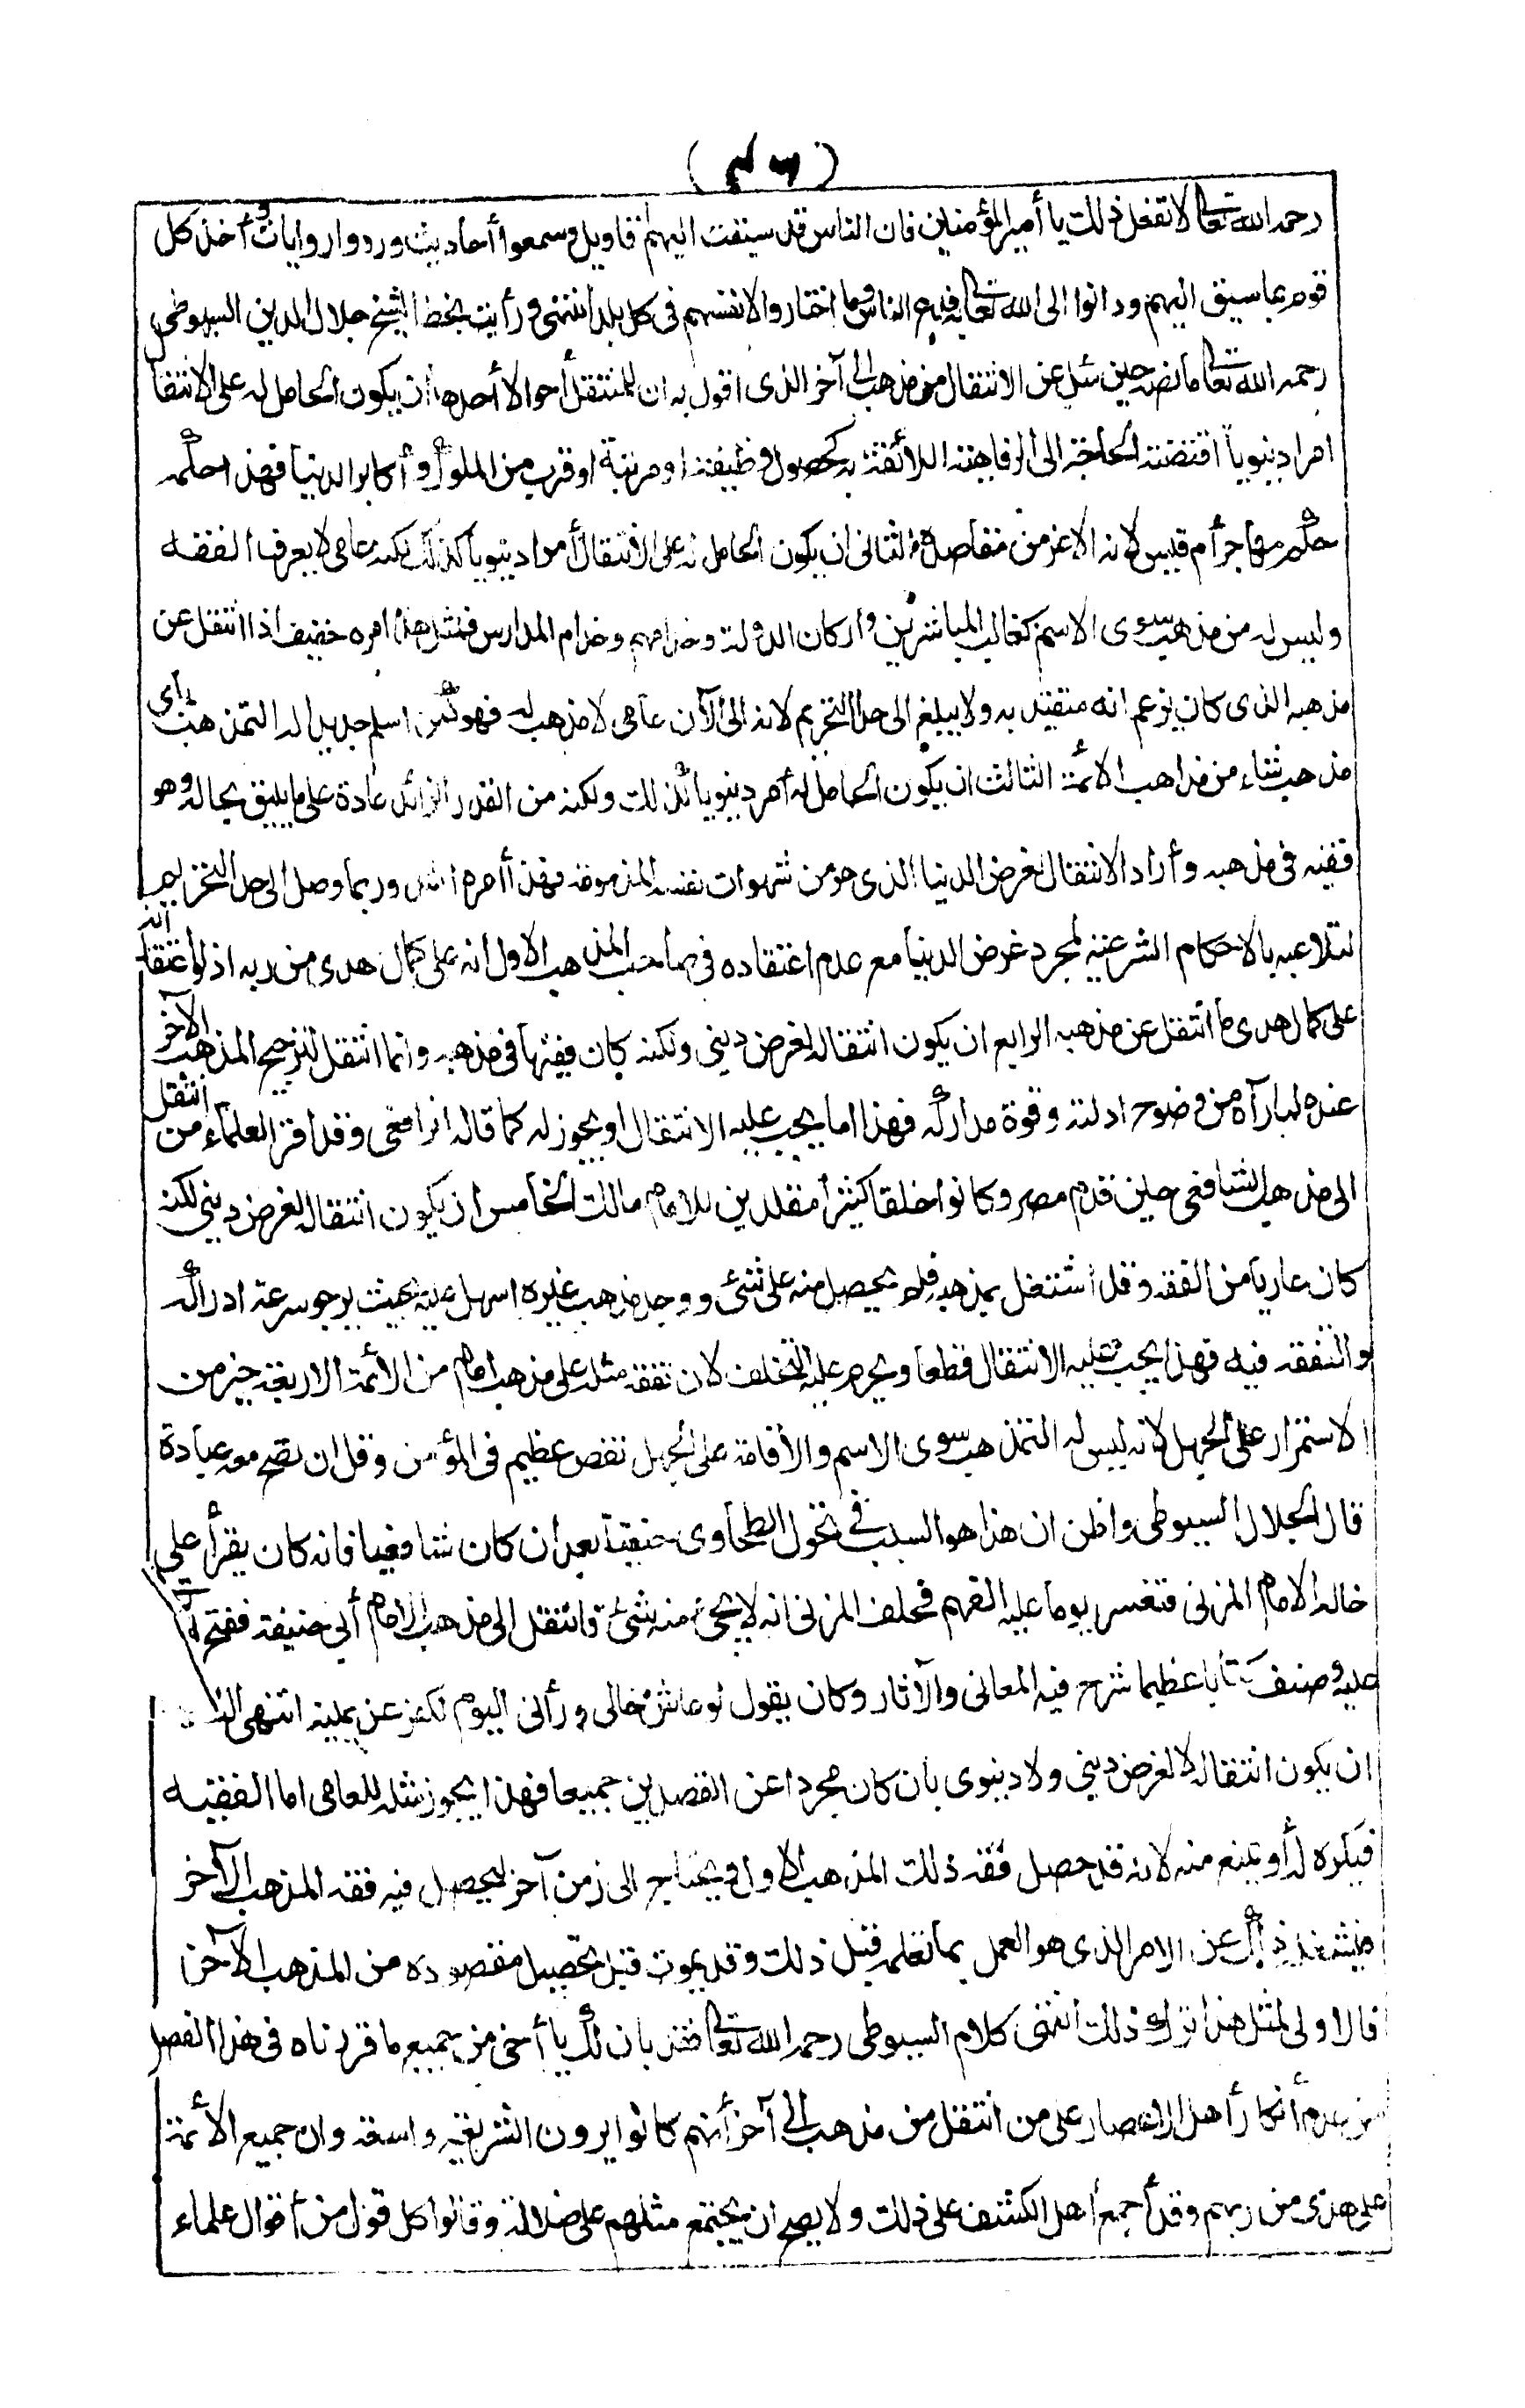 (٤٦)
رحمه الله تعالى لا تفعل ذلك يا أمير المؤمنين فان الناس قد سبقت اليهم أقاويل وسمعوا أحاديث ورووا روايات وأخذ كل
قوم بما سبق اليهم ودانوا الى الله تعالى به فدع الناس وما اختاروا لانفسهم فى كل بلد انتهى ورأيت بخط الشيخ جلال الدين السيوطى
رحمه الله تعالى ما نصه حين سئل عن الانتقال من مذهب الى آخر الذى اقول به ان للمنتقل أحوالا أحدها ان يكون الحامل له على الانتقال
امرا دنيويا اقتضته الحاجة الى الرفاهية اللائقة به كحصول وظيفة او مرتبة او قرب من الملوك وأكابر الدنيا فهذا حكمه
حكم مهاجر أم قيس لانه الاعز من مقاصده الثانى ان يكون الحامل له على الانتقال أمرا دنيويا كذلك لكنه عامى لا يعرف الفقه
وليس له من مذهب سوى الاسم كغالب المباشرين واركان الدولة وخدامهم وخدام المدارس فمثل هذا امره خفيف اذا انتقل عن
مذهبه الذى كان يزعم انه متقيد به ولا يبلغ الى حد التحريم لانه الى الآن عامى لا مذهب له فهو كمن اسلم جديدا له التمذهب بأى
مذهب شاء من مذاهب الائمة الثالث ان يكون الحامل له أمر دنيويا كذلك ولكنه من القدر الزائد عادة على ما يليق بحاله وهو
فقيه فى مذهبه وأراد الانتقال لغرض الدنيا الذى هو من شهوات نفسه المذمومة فهذا أمره اشد وربما وصل الى حد التحريم
لتلاعبه بالاحكام الشرعية لمجرد غرض الدنيا مع عدم اعتقاده فى صاحب المذهب الاول انه على كمال هدى من ربه اذ لو اعتقد انه
على كمال هدى ما انتقل عن مذهبه الرابع ان يكون انتقاله لغرض دينى ولكنه كان فقيها فى مذهبه وانما انتقل لترجيح المذهب الآخر
عنده لما رآه من وضوح ادلته وقوة مداركه فهذا اما يجب عليه الانتقال او يجوز له كما قاله الرافعى وقد اقر العلماء من انتقل
الى مذهب الشافعى حين قدم مصر وكانوا خلقا كثيرا مقلدين للامام مالك الخامس ان يكون انتقاله لغرض دينى لكنه
كان عاريا من الفقه وقد اشتغل بمذهبه فلم يحصل منه على شئ ووجد مذهب غيره اسهل عليه بحيث يرجو سرعة ادراكه
والتفقه فيه فهذا يجب عليه الانتقال قطعا ويحرم عليه التخلف لان تفقه مثله على مذهب امام من الائمة الاربعة خير من
الاستمرار على الجهل لانه ليس له التمذهب سوى الاسم والاقامة على الجهل نقص عظيم فى المؤمن وقل ان تصح معه عبادة
قال الجلال السيوطى واظن ان هذا هو السبب فى تحول الطحاوى حنفيا بعد أن كان شافعيا فانه كان يقرأ على
خاله الامام المزنى فتعسر يوما عليه الفهم فحلف المزنى انه لا يجئ منه شئ فانتقل الى مذهب الامام أبى حنيفة ففتح الله
عليه وصنف كتابا عظيما شرح فيه المعانى والآثار وكان يقول لو عاش خالى ورأنى اليوم لكفر عن يمينه انتهى السادس
ان يكون انتقاله لا لغرض دينى ولا دنيوى بان كان مجردا عن القصدين جميعا فهذا يجوز مثله للعامى اما الفقيه
فيكره له أو يمنع منه لانه قد حصل فقه ذلك المذهب الاول ويحتاج الى زمن آخر ليحصل فيه فقه المذهب الآخر
فيشغله ذلك عن الامر الذى هو العمل بما تعلمه قبل ذلك وقد يموت قبل تحصيل مقصوده من المذهب الآخر
فالاولى لمثل هذا ترك ذلك انتهى كلام السيوطى رحمه الله تعالى فقد بان لك يا أخى من جميع ما قررناه فى هذا الفصل
من عدم انكار أهل الاعصار على من انتقل من مذهب الى آخر أنهم كانوا يرون الشريعة واسعة وان جميع الائمة
على هدى من ربهم وقد أجمع أهل الكشف على ذلك ولا يصح ان يجتمع مثلهم على ضلالة وقالوا كل قول من أقوال علماء